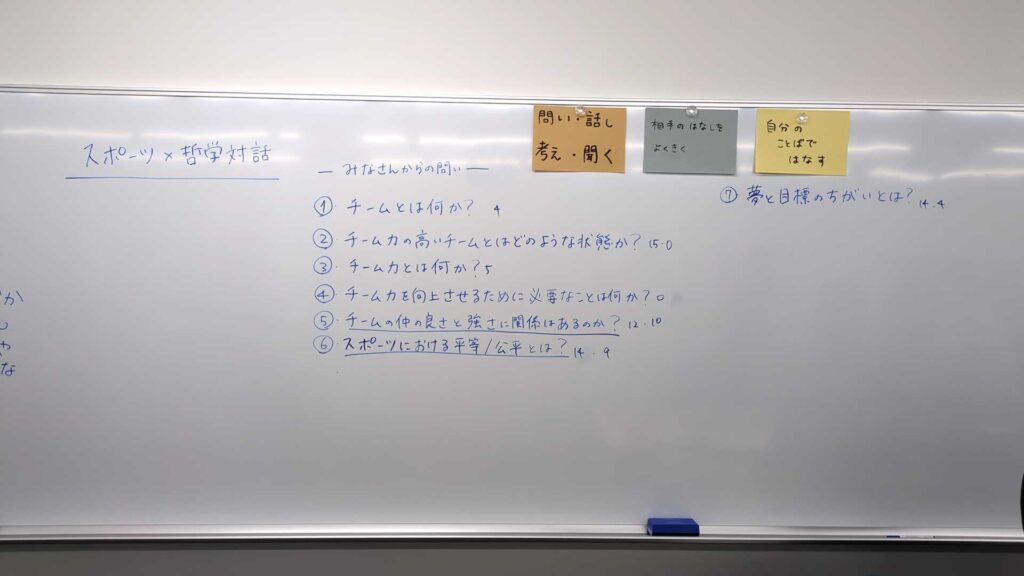 スポーツ×哲学対話
― みなさんからの問い ―
① チームとは何か? 4
② チーム力の高いチームとはどのような状態か? 15・0
③ チーム力とは何か? 5
④ チーム力を向上させるために必要なことは何か? 0
⑤ チームの仲の良さと強さに関係はあるのか? 12・10
⑥ スポーツにおける平等/公平とは? 14・9
問い・話し
考え・聞く
相手のはなしを
よくきく
自分の
ことばで
はなす
⑦ 夢と目標のちがいとは? 14・4